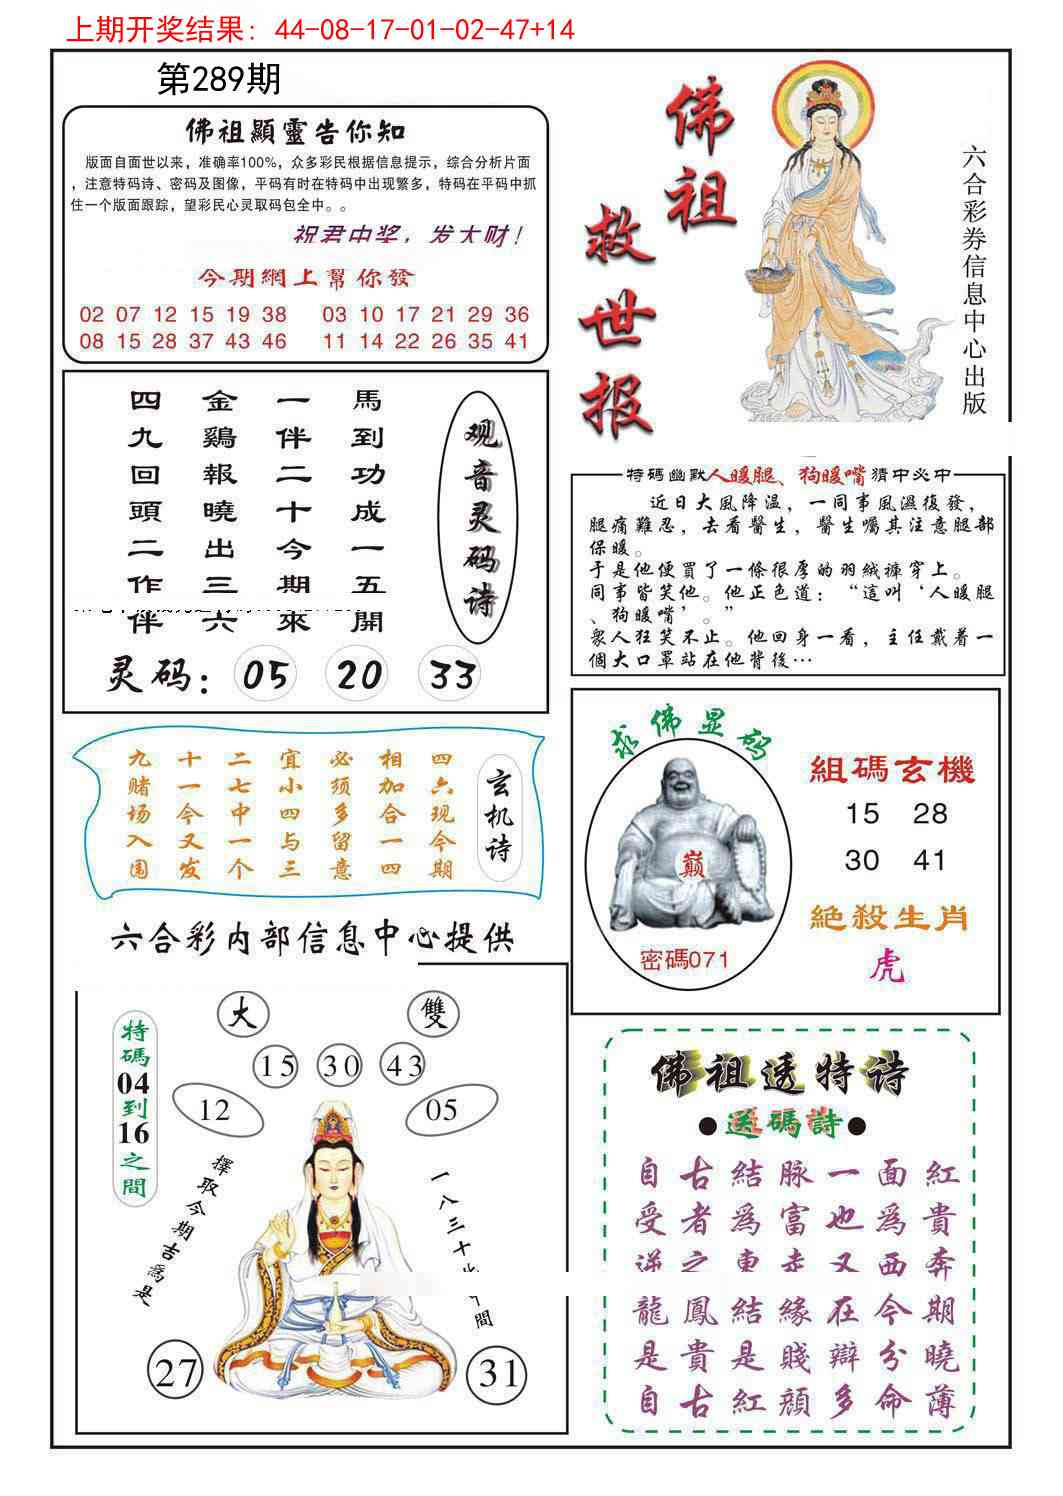 上期开奖结果：44-08-17-01-02-47+14
第289期
佛祖顯靈告你知
版面自面世以来，准确率100%，众多彩民根据信息提示，综合分析片面
，注意特码诗、密码及图像，平码有时在特码中出现繁多，特码在平码中抓
住一个版面跟踪，望彩民心灵取码包全中。。
祝君中奖，发大财！
今期網上幫你發
02 07 12 15 19 38 03 10 17 21 29 36
08 15 28 37 43 46 11 14 22 26 35 41
佛祖
救世报
六合彩券信息中心出版
观音灵码诗
馬到功成一五開
一伴二十今期來
金鷄報曉出三六
四九回頭二作伴
灵码：05 20 33
特碼幽默人暖腿、狗暖嘴猜中必中
近日大風降温，一同事風濕復發，
腿痛難忍，去看醫生，醫生囑其注意腿部
保暖。
于是他便買了一條很厚的羽絨褲穿上。
同事皆笑他。他正色道：“這叫‘人暖腿
、狗暖嘴’。”
衆人狂笑不止。他回身一看，主任戴着一
個大口罩站在他背後…
玄机诗
四六现今期
相加合一四
必须多留意
宜小四与三
二七中一个
十一今又发
九赌场入围
求佛显码
巅
密碼071
組碼玄機
15 28
30 41
絶殺生肖
虎
六合彩内部信息中心提供
特碼04到16之間
大 雙
15 30 43
12 05
擇取今期吉爲是
一八三十
間
27 31
佛祖透特诗
●送碼詩●
自古結脉一面紅
受者爲富也爲貴
逆之東走又西奔
龍鳳結緣在今期
是貴是賤辯分曉
自古紅顔多命薄